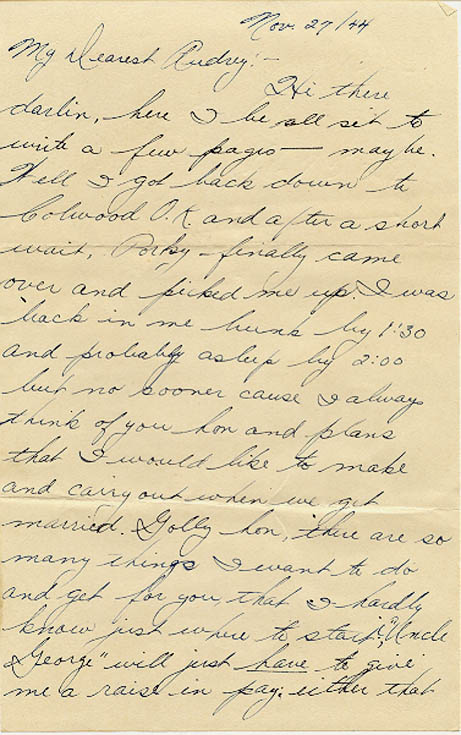 Nov. 27/44
My Dearest Audrey:-
Hi there
darlin, here I be all set to
write a few pages — maybe.
Well I got back down to
Colwood O.K. and after a short
wait, Porky finally came
over and picked me up. I was
back in me bunk by 1:30
and probably asleep by 2:00
but no sooner cause I always
think of you hon and plans
that I would like to make
and carry out when we get
married. Golly hon, there are so
many things I want to do
and get for you, that I hardly
know just where to start. "Uncle
George" will just have to give
me a raise in pay. either that